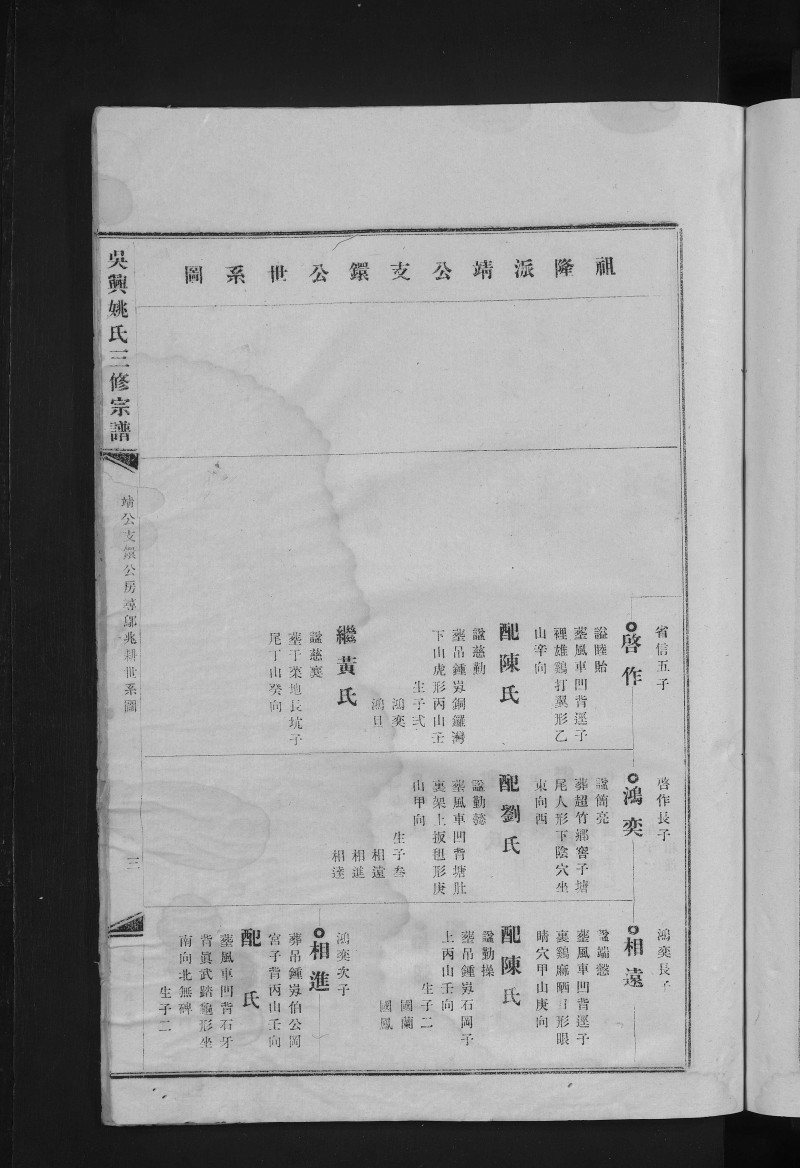 祖隆派靖公支鐶公世系圖
省信五子
啓作
諡睦貽
塟風車凹背逕子
裡雄鷄打翼形乙
山辛向
配陳氏
諡慈勤
塟吊鍾嵏銅鑼灣
下山虎形丙山壬
生子弍
鴻奕
鴻旦
繼黃氏
諡慈寬
塟于菜地長坑子
尾丁山癸向
啓作長子
鴻奕
諡簡亮
葬超竹鄉窖子塘
尾人形下陰穴坐
東向西
配劉氏
諡勤懿
塟風車凹背塘肚
裏架上扳氊形庚
山甲向
生子叁
相遠
相進
相達
鴻奕長子
相遠
諡端懿
塟風車凹背逕子
裏鷄麻晒日形眼
睛穴甲山庚向
配陳氏
諡勤操
塟吊鍾嵏石岡子
上丙山壬向
生子二
國蘭
國鳳
鴻奕次子
相進
葬吊鍾嵏伯公岡
宮子背丙山壬向
配氏
塟風車凹背石牙
背眞武踏龜形坐
南向北無碑
生子二
吳興姚氏三修宗譜
靖公支鐶公房尋鄔兆耕世系圖
三